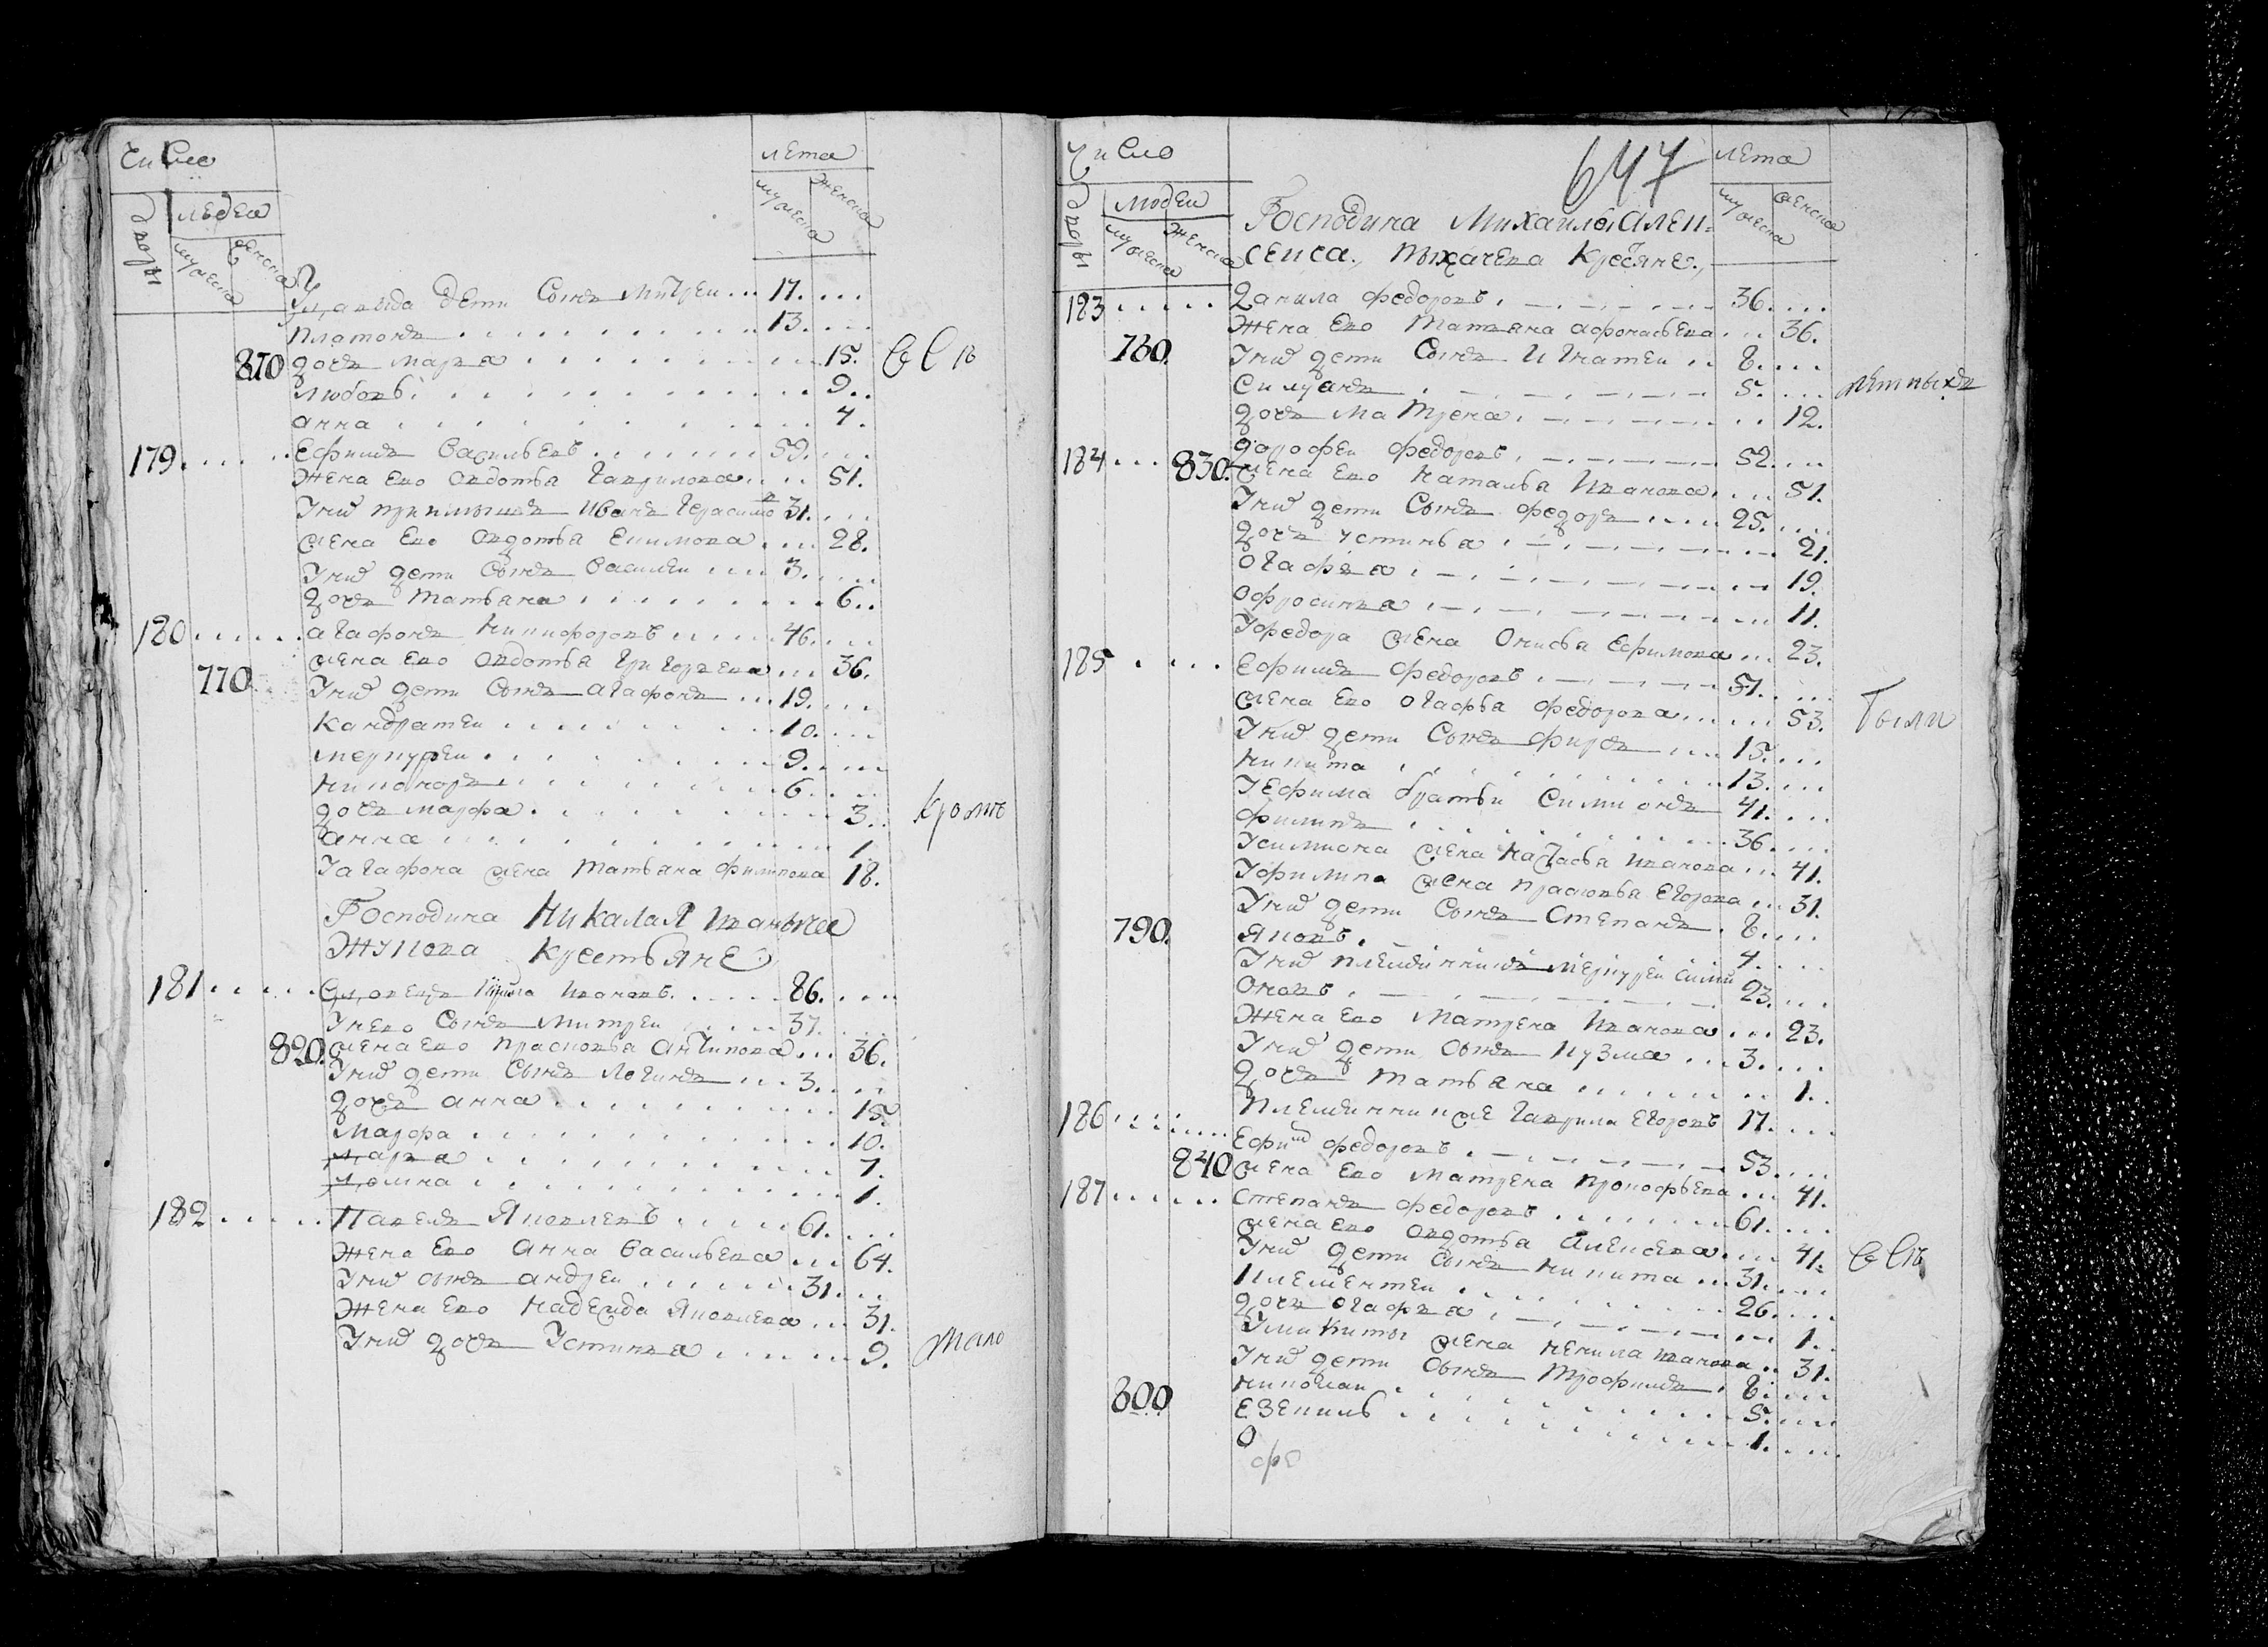 Число
лета
Дворы
людеи
мужеска
женска
мужеска
женска
дети сынъ Митреи ... 17. ...
Платонъ ... 13. ...
810 дочь Марья ... 15.
Любовь ... 9.
анна ... 4.
179. Ефимъ Васильевъ ... 59. ...
жена Ево Овдотья Гаврилова ... 51.
Унихъ приимышъ Иванъ Герасимовъ 31. ...
жена Ево Овдотья Екимова ... 28.
Унихъ дети сынъ Василеи ... 3. ...
дочь Татьяна ... 6.
180 агафонъ Никифоровъ ... 46. ...
жена Ево Овдотья Григорьева ... 36.
770 Унихъ дети сынъ агафонъ ... 19. ...
Кандратеи ... 10. ...
Меркуреи ... 9. ...
Никаноръ ... 6. ...
дочь Марфа ... 3.
Кроме
анна ... 1.
Уагафона жена Татьяна Филипова 18.
Господина Никалая Иваныча
Жукова крестьяне
181 Кирила Ивановъ ... 86. ...
Унево сынъ Митреи ... 37. ...
820. жена ево Прасковья Антипова ... 36.
Унихъ дети сынъ Логинъ ... 3. ...
дочь анна ... 15.
Марфа ... 10.
Марья ... 7.
... 1.
182 Павелъ Яковлевъ ... 61. ...
Жена Ево Анна Васильева ... 64.
Унихъ сынъ андреи ... 31. ...
Жена Ево Надежда Яковлева ... 31.
Унихъ дочь Устинья ... 9.
Мало
Число
647
лета
Дворы
людеи
мужеска
женска
мужеска
женска
Господина Михаила Алек=
сеича крестьяне
183 Данила Федоровъ ... 36. ...
Жена Ево Татьяна афонасьева ... 36.
780. Унихъ дети сынъ Игнатеи ... 8. ...
Силуянъ ... 5. ...
дочь Матрена ... 12.
184 Дорофеи Федоровъ ... 52. ...
830. жена Ево Наталья Иванова ... 51.
Унихъ дети сынъ Федоръ ... 25. ...
дочь Устинья ... 21.
Огафья ... 19.
Офросинья ... 11.
Уфедора жена Онисья Ефимова ... 23.
185 Ефимъ Федоровъ ... 57. ...
жена Ево Огафья Федорова ... 53.
Унихъ дети сынъ Фирсъ ... 15. ...
Никита ... 13. ...
УЕфима братьи Симионъ 41. ...
Филипъ ... 36. ...
Усимиона жена Настасья Иванова ... 41.
Уфилипа жена Прасковья Егорова ... 31.
Унихъ дети сынъ Степанъ 8. ...
790. Яковъ ... 4. ...
Унихъ племянникъ Меркуреи Сими
оновъ ... 23. ...
Жена Ево Матрена Иванова ... 23.
Унихъ дети сынъ Кузма ... 3. ...
дочь Татьяна ... 1.
Племянникже Гаврила Егоровъ 17. ...
186 Ефимъ Федоровъ ... 53. ...
840 жена Ево Матрена Прокофьева ... 41.
187 Степанъ Федоровъ ... 61. ...
жена ево Овдотья Алексева ... 41.
Унихъ дети сынъ Никита ... 31. ...
Клементеи ... 26. ...
дочь Огафья ... 1.
жена Ненила Иванова ... 31.
Унихъ дети сынъ Трофимъ 8. ...
Николаи ... 5. ...
800 Езекиль ... 1. ...